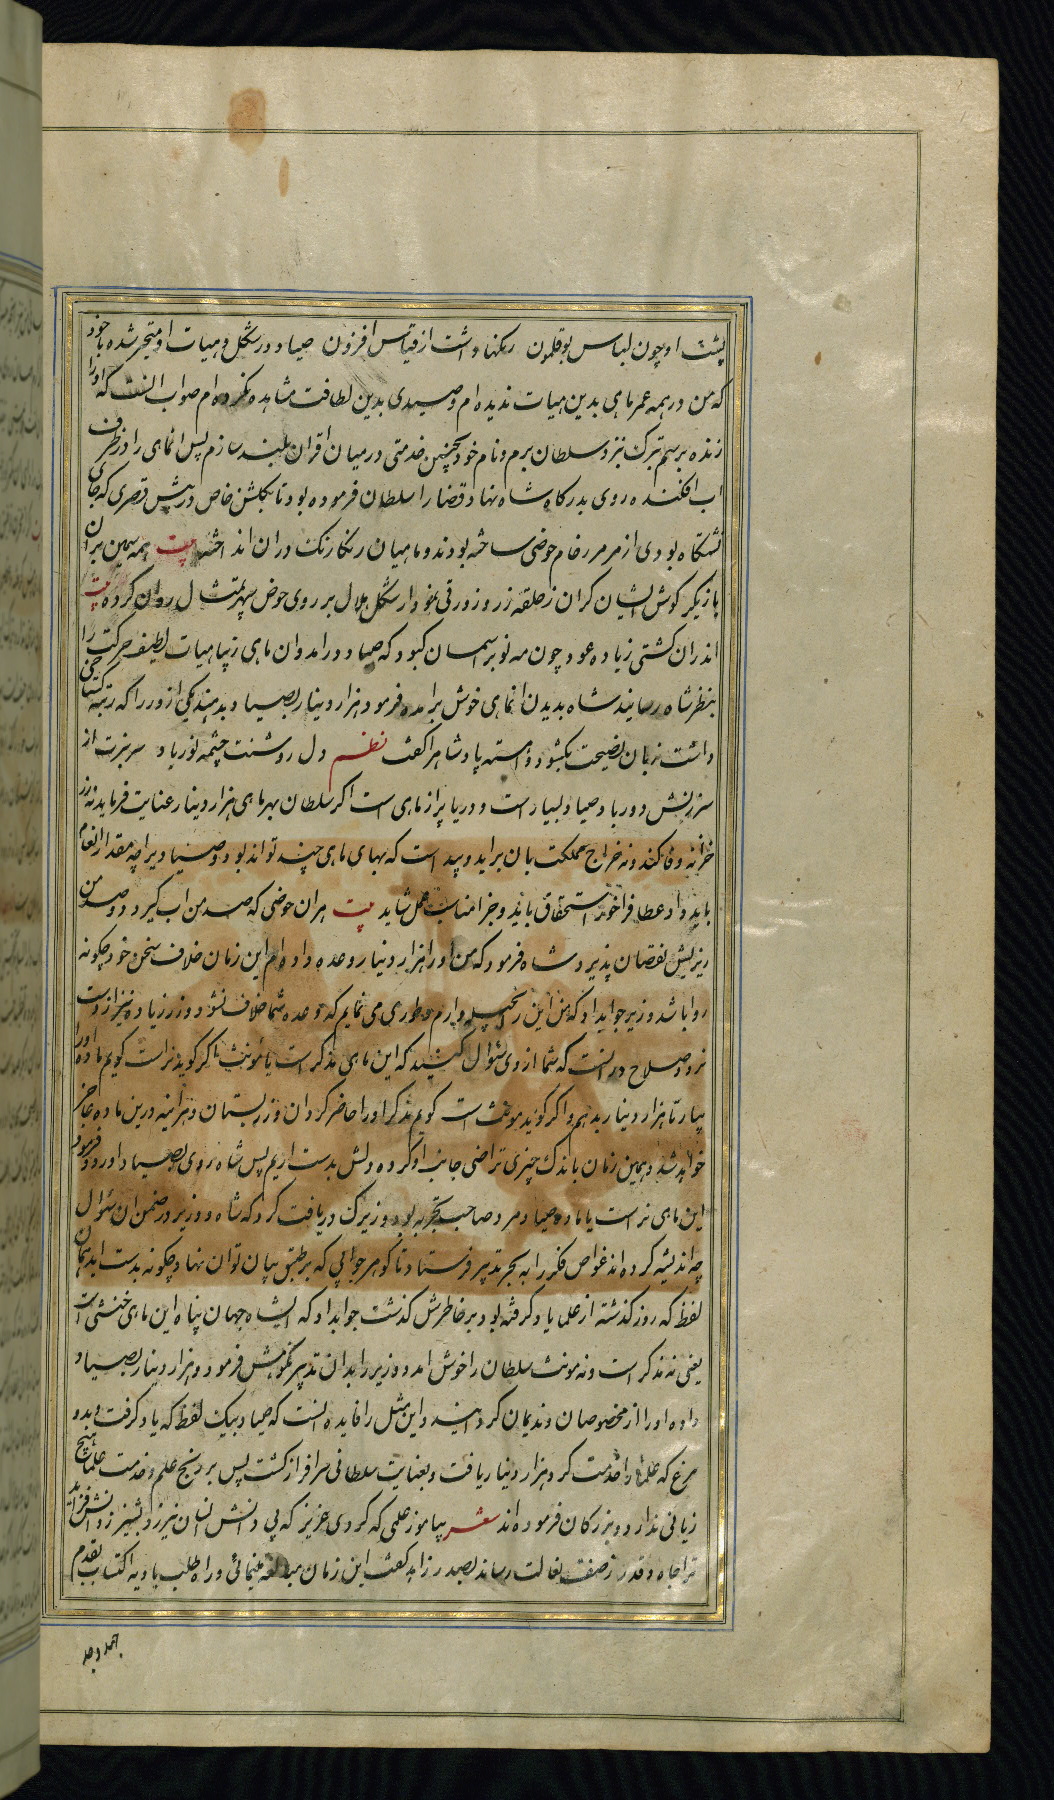 پشت او چون لباس بوقلمون رنکها داشت از قیاس افزون صیاد در شکل و هیات او متحیر شده با خود
که من در همه عمر ماهی بدین هیات ندیده ام و صیدی بدین لطافت مشاهده نکرده ام صواب انست که او را
زنده برسم تبرک نزد سلطان برم و نام خود بچنین خدمتی در میان اقران بلند سازم پس ان ماهی را در ظرف
اب افکنده روی بدرکاه شاه نهاد قضا را سلطان فرموده بود تا بکلشن خاص در پیش قصری که جای
نشستکاه بودی از مرمر رخام حوضی ساخته بودند و ماهیان رنکارنک در ان انداخته بیت همه سیمین بران
بازیکر کوش ایشان کران ز حلقه زر و زورقی نمودار شکل هلال بر روی حوض سپهر تمثال روان کرده بیت
اندران کشتی زیاده عود چون مه نو بر اسمان کبود که صیاد درامد و ان ماهی زیبا هیات لطیف حرکت را
بنظر شاه رسانید شاه بدیدن ان ماهی خوش برامده فرمود هزار دینار بصیاد بدهند یکی از وزرا که رتبه کستاخی
داشت زبان نصیحت بکشود و اهسته پادشاه را کفت نظم دل روشنت چشمه نور باد سر بزمت از
سرزنش دور باد صیاد بسیار است و دریا پر از ماهی است اکر سلطان بهر ماهی هزار دینار عنایت فرماید نه زر
خزانه وفا کند و نه خراج مملکت بان براید و پیدا است که بهای ماهی چند تواند بود و صیاد را چه مقدار انعام
باید داد عطا فراخور استحقاق باید و جزا مناسب عمل شاید بیت هران حوضی که صد من اب کیرد دو صد من
ریزیش نقصان پذیرد شاه فرمود که من او را هزار دینار وعده داده ام این زمان خلاف سخن خود چکونه
روا باشد وزیر جواب داد که من این را حیله دارم و طوری می نمایم که وعده شما خلاف نشود و زر زیاده نیز از دست
نرود صلاح در انست که شما از وی سؤال کنید که این ماهی مذکر است یا مؤنث اکر کوید نر است کویم ماده او را
بیار تا هزار دینار بدهم و اکر کوید مونث است کویم مذکر او را حاضر کردان و زر بستان و هراینه درین ماده عاجز
خواهد شد و همین زمان باندک چیزی تراضی جانب او کرده دلش بدست اریم پس شاه روی بصیاد اورد و فرمود
این ماهی نر است یا ماده صیاد مرد صاحب تجربه بود و زیرک دریافت کرد که شاه و وزیر در ضمن ان سؤال
چه اندیشه کرده اند غواص فکر را به بحر تدبر فرستاد تا کوهر جوابی که بر طبق بیان توان نهاد چکونه بدست اید همان
لفظ که روز کذشته از علما یاد کرفته بود بر خاطرش کذشت جواب داد که ای شاه جهان پناه این ماهی خنثی است
یعنی نه مذکر است و نه مونث سلطان را خوش امد و وزیر را بدان تدبیر نکوهش فرمود و هزار دینار بصیاد
داده او را از مخصوصان و ندیمان کردانید و این مثل را فایده انست که صیاد بیک لفظ که یاد کرفت و بدو
مرغ که علما را خدمت کرد هزار دینار یافت و بعنایت سلطانی سرافراز کشت پس بر رنج علم و خدمت علما هیچ
زیانی ندارد و بزرکان فرموده اند شعر بیاموز علمی که کردی عزیز که بی دانش انسان نیرزد بشیز ز دانش فزاید
ترا جاه و قدر ز صف نعالت رساند بصدر زاهد کفت این زمان مبالغه مینمائی و راه طلب بادیه اکتساب بقدم
جهد و جد